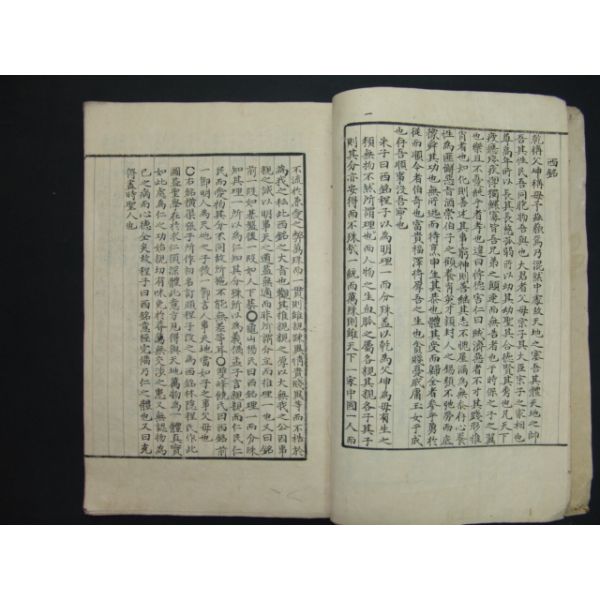 西銘
乾稱父坤稱母予玆藐焉乃混然中處故天地之塞吾其體天地之帥
吾其性民吾同胞物吾與也大君者吾父母宗子其大臣宗子之家相也
尊高年所以長其長慈孤弱所以幼其幼聖其合德賢其秀也凡天下
疲癃殘疾惸獨鰥寡皆吾兄弟之顚連而無告者也于時保之子之翼
也樂且不憂純乎孝者也違曰悖德害仁曰賊濟惡者不才其踐形惟
肖者也知化則善述其事窮神則善繼其志不愧屋漏爲無忝存心養
性爲匪懈惡旨酒崇伯子之顧養育英才穎封人之錫類不弛勞而底
豫舜其功也無所逃而待烹申生其恭也體其受而歸全者參乎勇於
從而順令者伯奇也富貴福澤將厚吾之生也貧賤憂戚庸玉女于成
也存吾順事沒吾寧也
朱子曰西銘程子以爲明理一而分殊蓋以乾爲父坤爲母有生之
類無物不然所謂理一也而人物之生血脉之屬各親其親各子其子
則其分亦安得而不殊哉一統而萬殊則雖天下一家中國一人而
不流於兼愛之弊萬殊而一貫則雖親疎異情貴賤異等而不梏於
爲我之私此西銘之大旨也觀其推親親之厚以大無我之公因事
親之誠以明事天之道蓋無適而非所謂分立而推理一也又曰銘
前一段如棊盤後一段如人下棊○龜山楊氏曰西銘理一而分殊
知其理一所以爲仁知其分殊所以爲義猶孟子言親親而仁民仁
民而愛物其分不同故所施不能無差等耳○雙峰饒氏曰西銘前
一節明人爲天地之子後一節言人事天地當如子之事父母也
○右銘橫渠張子所作初名訂頑程子改之爲西銘林隱程氏作此
圖蓋聖學在於求仁須深體此意方見得與天地萬物爲一體真實
如此處爲仁之功始親切有味免於莽蕩無交涉之患又無認物爲
己之病而心德全矣故程子曰西銘意極完備乃仁之體也又曰充
得盡時聖人也